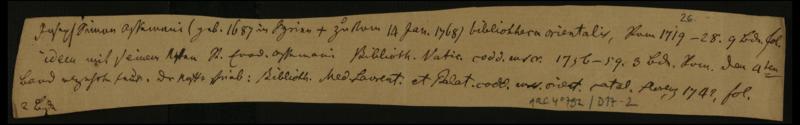 26.
Joseph Simon Assemanus (geb. 1687 in Syrien + zu Rom 14 Jan. 1768) bibliotheca orientalis, Rom 1719-28. 9 Bde. fol.
idem mit seinem St. Evod. Assemani Biblioth. Vatic. codd. mscr. 1756-59. 3 Bde. Rom. den 4ten
Band Der : Biblioth. Med. Laurent. et Palat. codd. mscr. orient. catal. 1742, fol.
2 Bde